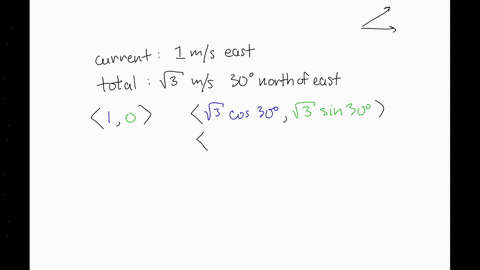 current: 1 m/s east
total: √3 m/s 30° north of east
⟨1, 0⟩ ⟨√3 cos 30°, √3 sin 30°⟩
⟨